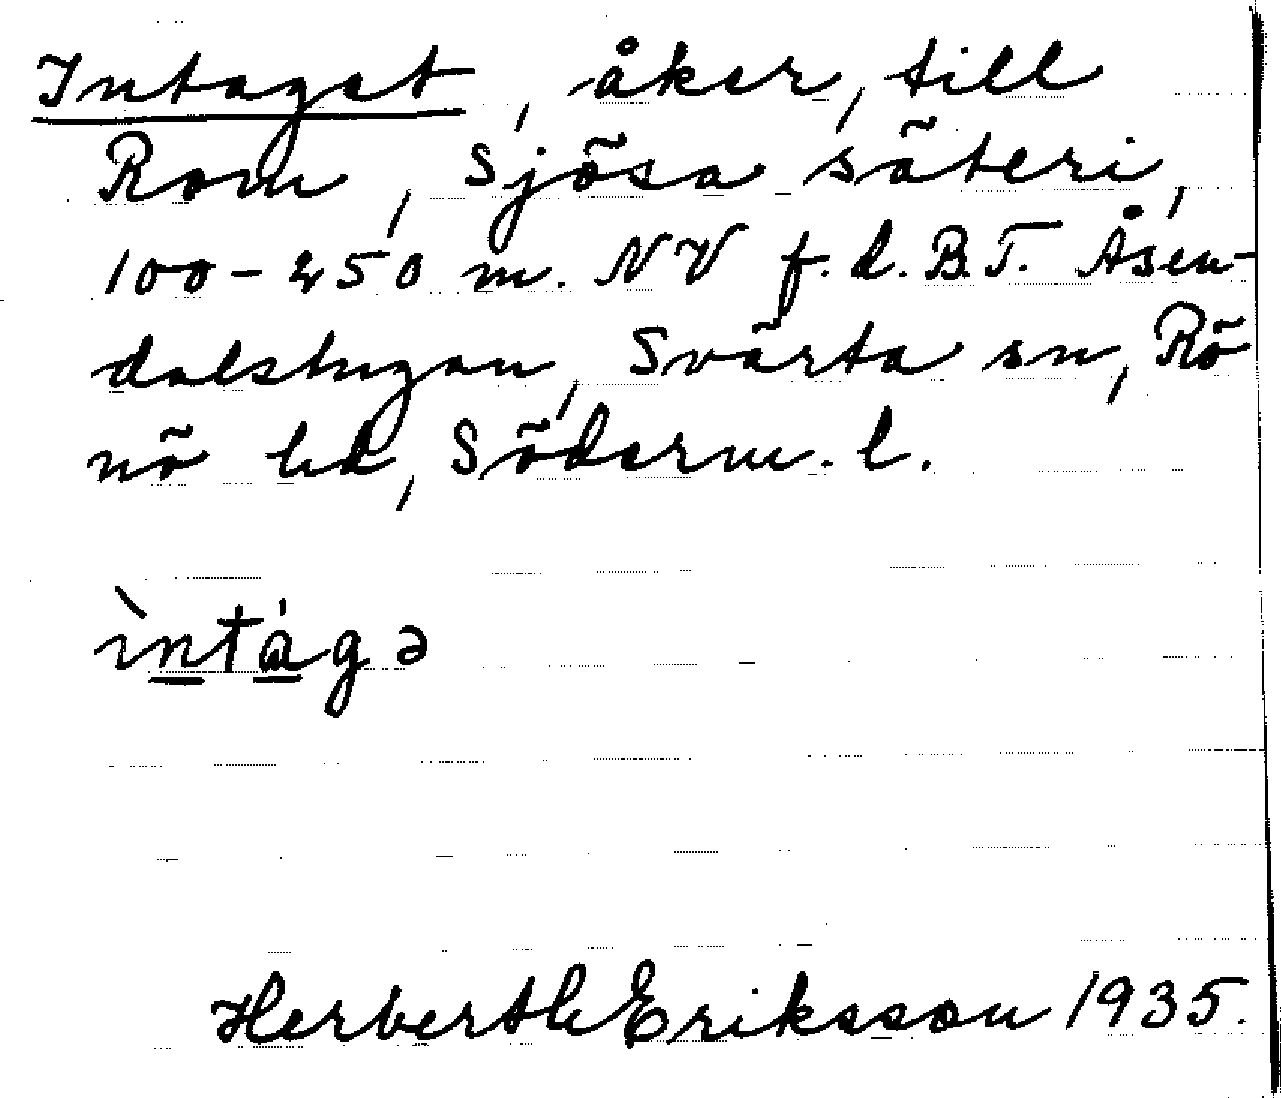 Intaget, åker, till
Rom, Sjösa säteri,
100-250 m. NV f.d. B.T. Åsen-
dalstugan, Svärta sn, Rö
nö hd, Söderm. l.
ìntág ə
Herberth Eriksson 1935.